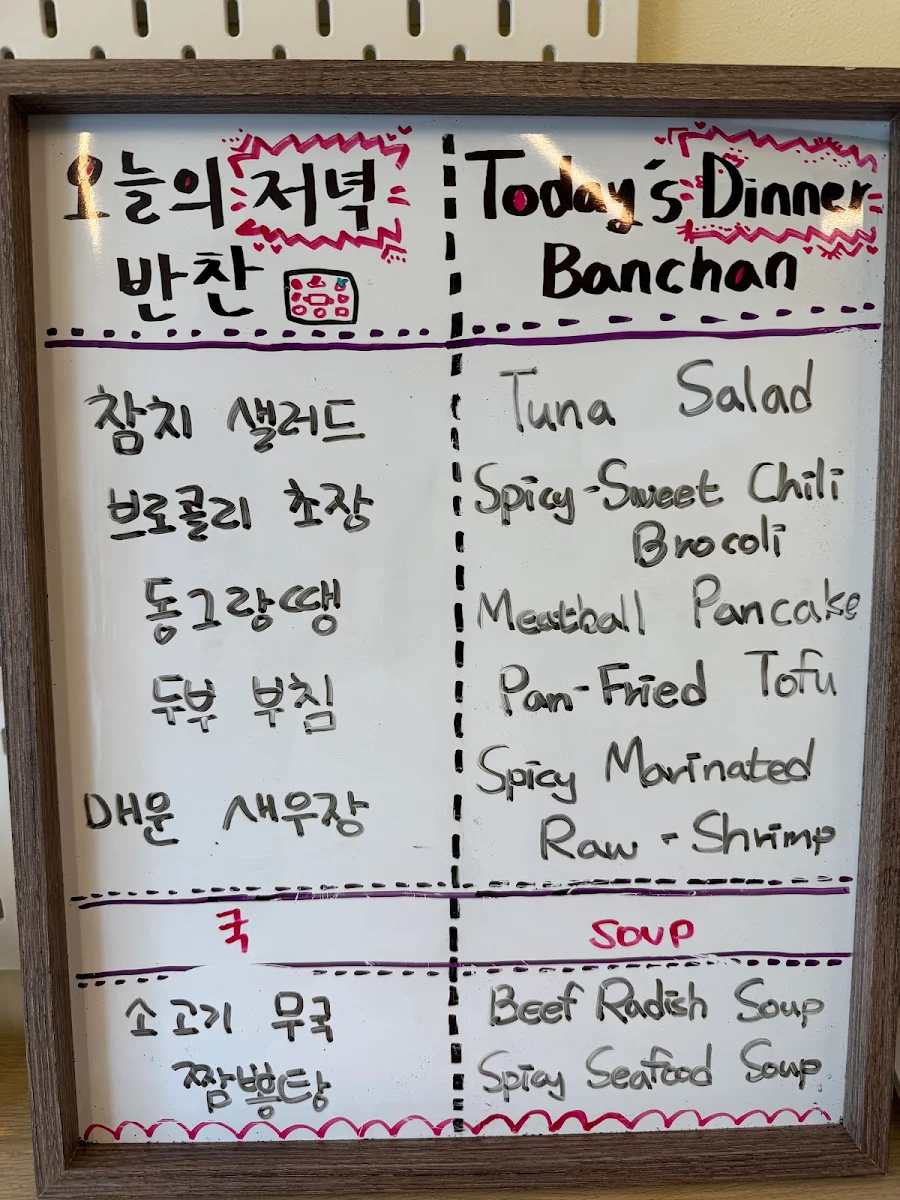 오늘의 저녁
반찬
참치 샐러드
브로콜리 초장
동그랑땡
두부 부침
매운 새우장
국
소고기 무국
짬뽕탕
Today's Dinner
Banchan
Tuna Salad
Spicy-Sweet Chili
Brocoli
Meatball Pancake
Pan-Fried Tofu
Spicy Marinated
Raw - Shrimp
SOUP
Beef Radish Soup
Spicy Seafood Soup